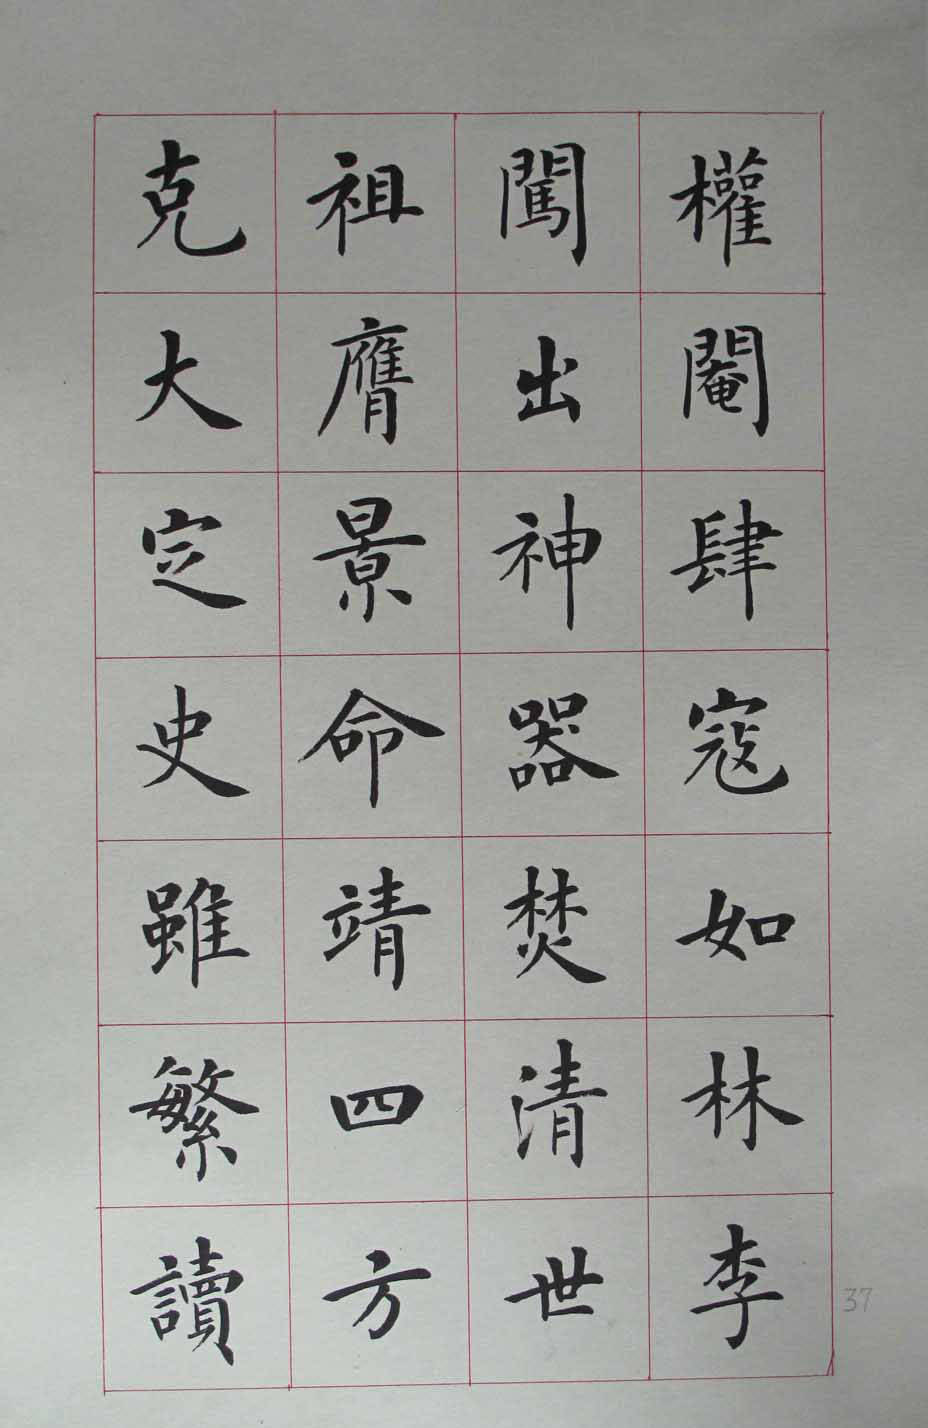 權閹肆寇如林李
闖出神器焚清世
祖膺景命靖四方
克大定史雖繁讀
37